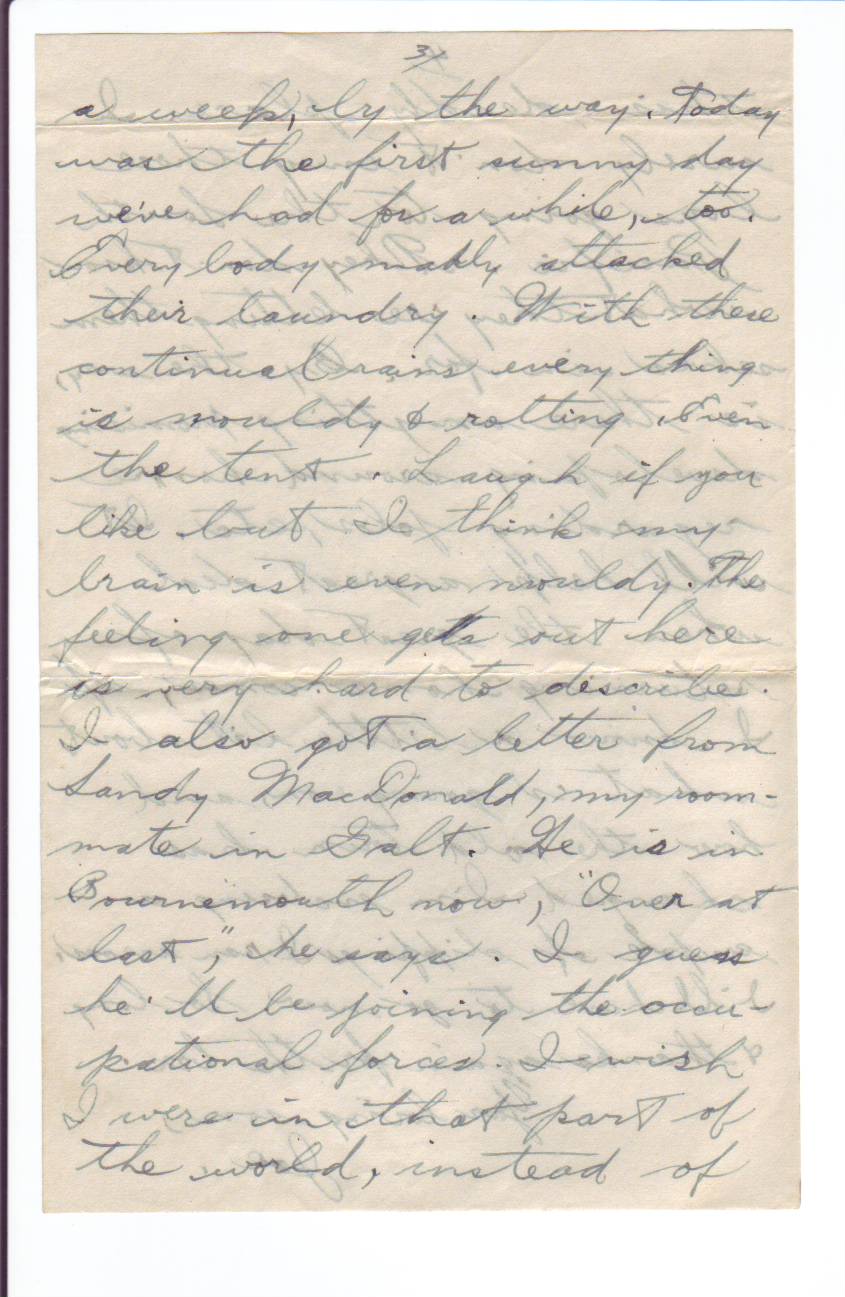 3/
a week, by the way. Today
was the first sunny day
we've had for a while, too.
Everybody madly attacked
their laundry. With these
continual rains every thing
is mouldy & rotting. Even
the tent. Laugh if you
like but I think my
brain is even mouldy. The
feeling one gets out here
is very hard to describe.
I also got a letter from
Sandy MacDonald, my room-
mate in Galt. He is in
Bournemouth now, "Over at
last", he says. I guess
he'll be joining the occu-
pational forces. I wish
I were in that part of
the world, instead of